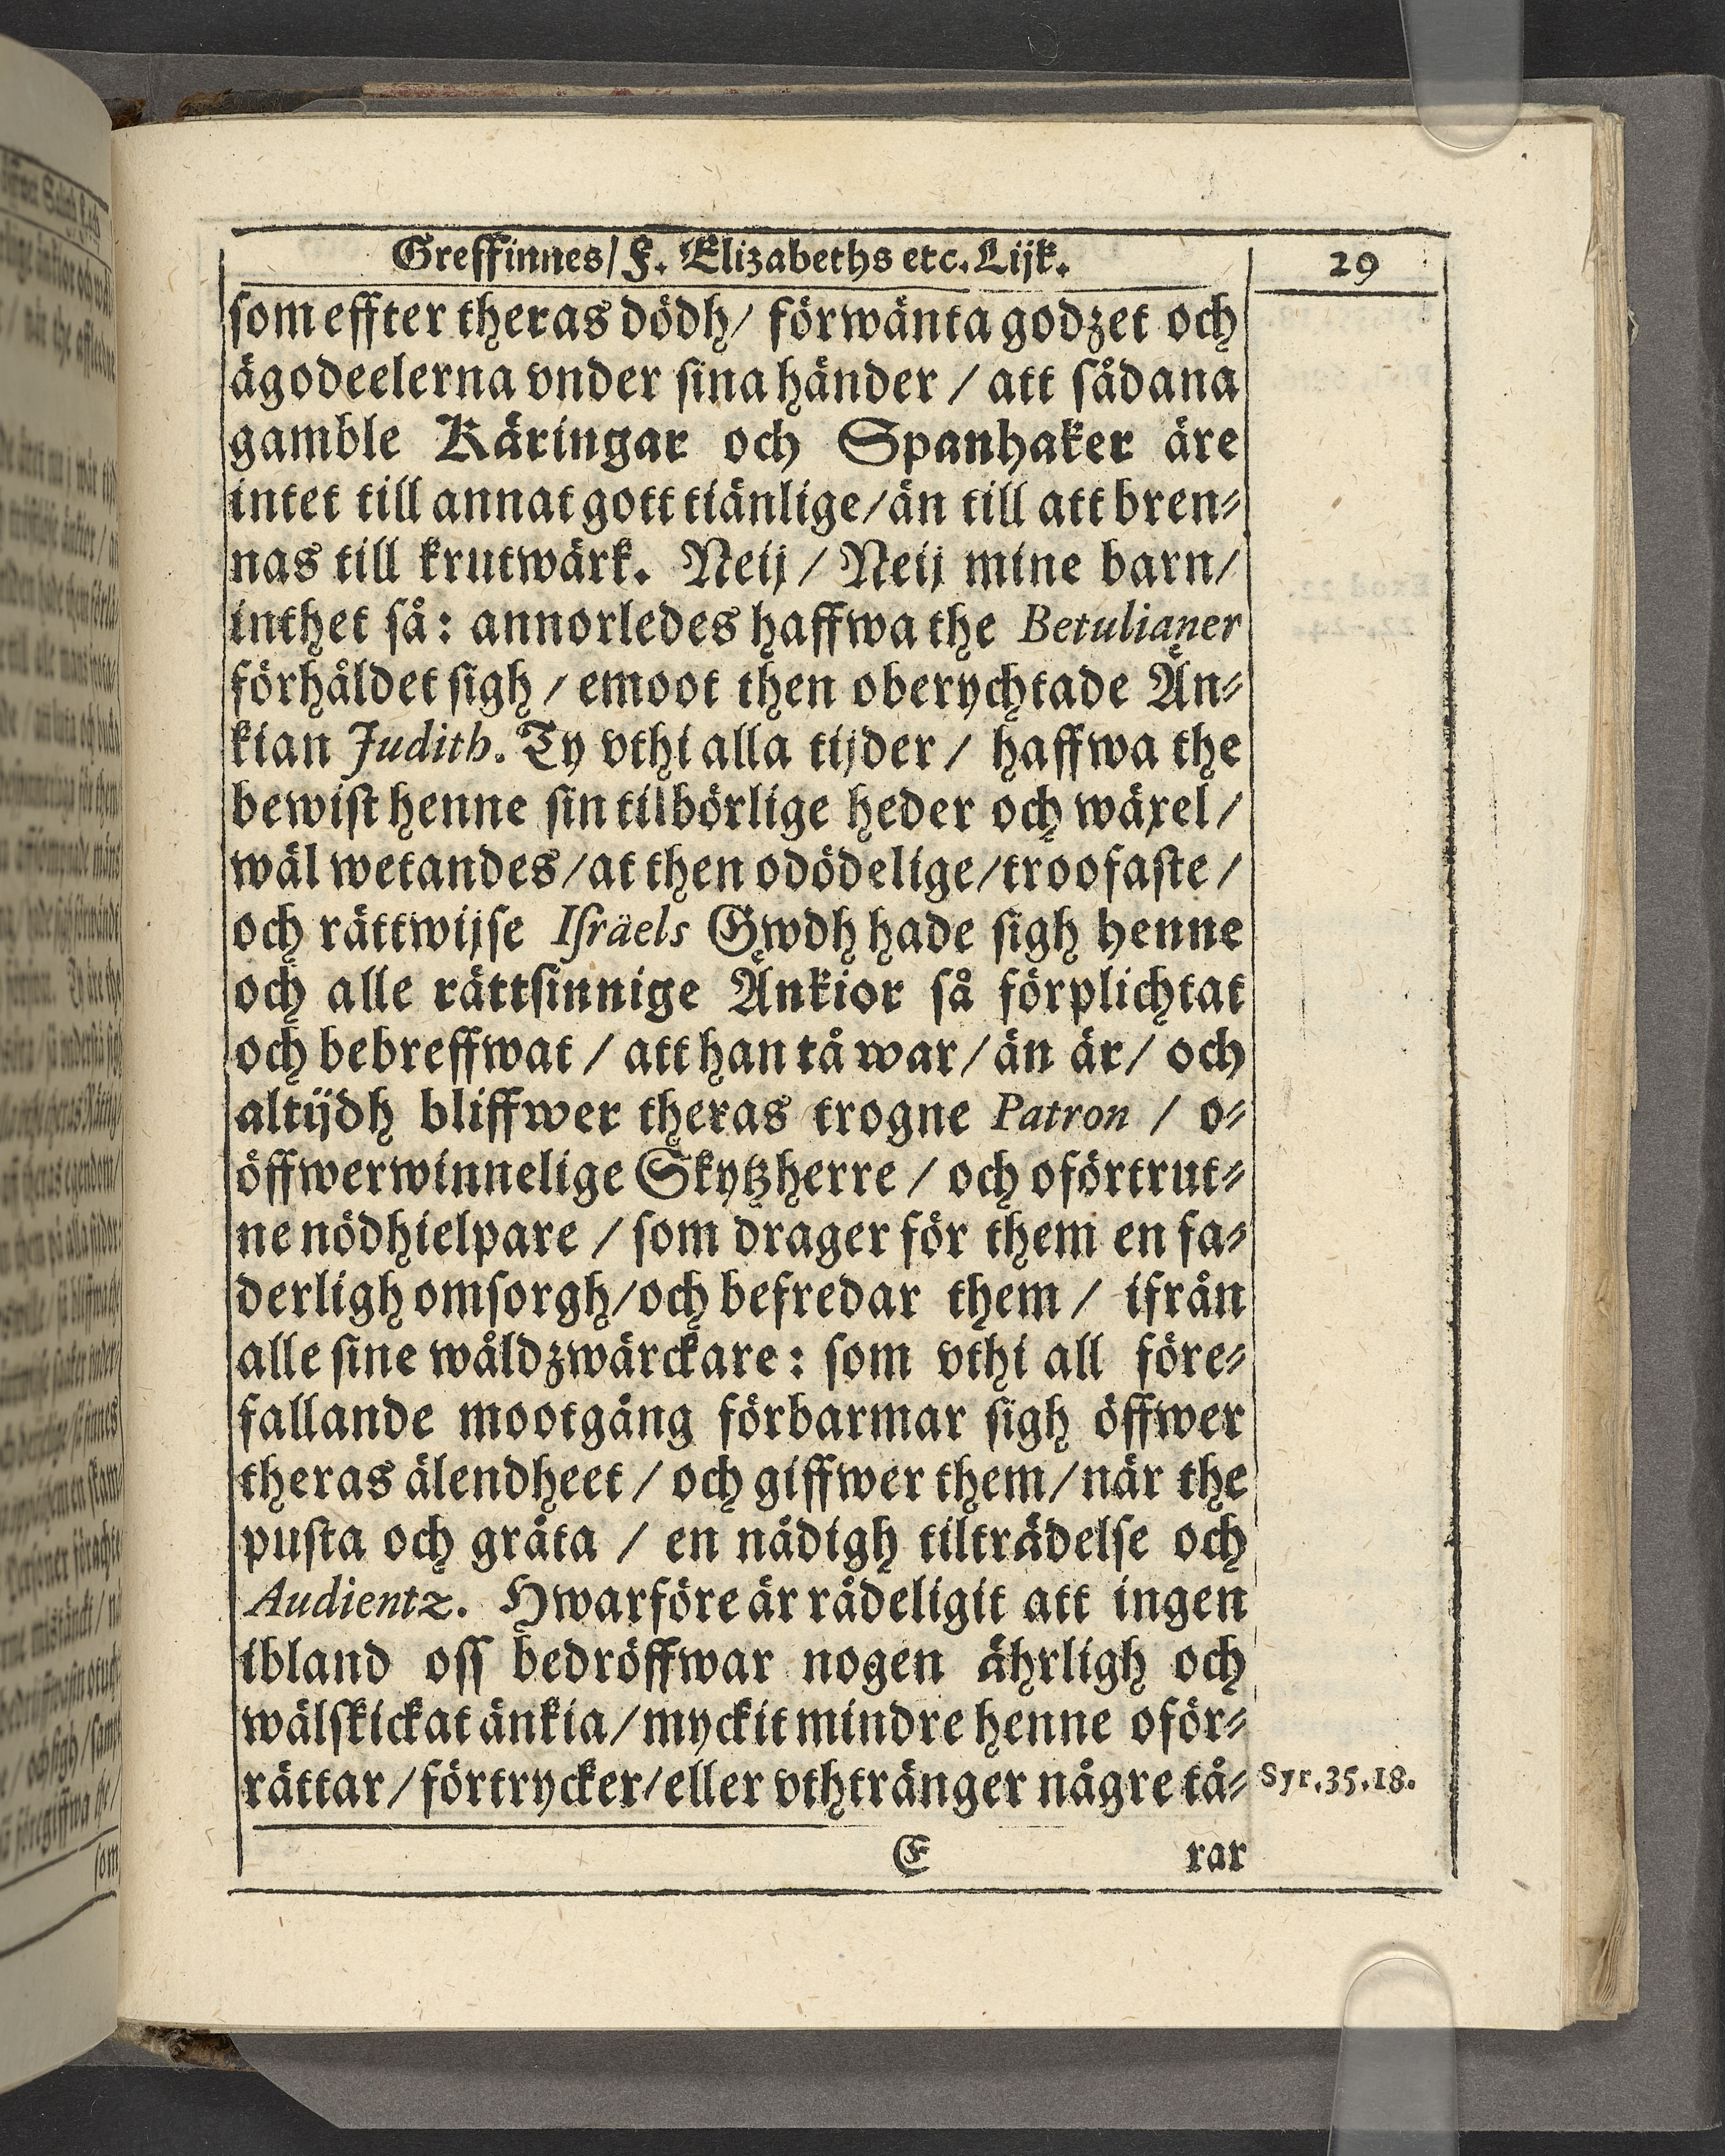 Greffinnes/ F. Elizabeths etc. Lijk.
29
som effter theras dödh/ förwänta godzet och
ägodeelerna vnder sina händer / att sådana
gamble Käringar och Spanhaker äre
intet till annat gott tiänlige/än till att bren⸗
nas till krutwärk. Neij / Neij mine barn/
inthet så: annorledes haffwa the Betulianer
förhåldet sigh / emoot then oberychtade Än⸗
kian Judith. Ty vthi alla tijder / haffwa the
bewist henne sin tilbörlige heder och wäxel/
wäl wetandes/at then odödelige/troofaste/
och rättwijse Israëls Gwdh hade sigh henne
och alle rättsinnige Änkior så förplichtat
och bebreffwat / att han tå war/ än är/ och
altijdh bliffwer theras trogne Patron / o⸗
öffwerwinnelige Skytzherre / och oförtrut⸗
ne nödhielpare / som drager för them en fa⸗
derligh omsorgh/och befredar them / ifrån
alle sine wåldzwärckare: som vthi all före⸗
fallande mootgång förbarmar sigh öffwer
theras älendheet / och giffwer them/när the
pusta och gråta / en nådigh tilträdelse och
Audientz. Hwarföre är rådeligit att ingen
ibland oss bedröffwar nogen ährligh och
wälskickat änkia/myckit mindre henne oför⸗
rättar/förtrycker/eller vthtränger någre tå⸗
Syr.35.18.
E
rar